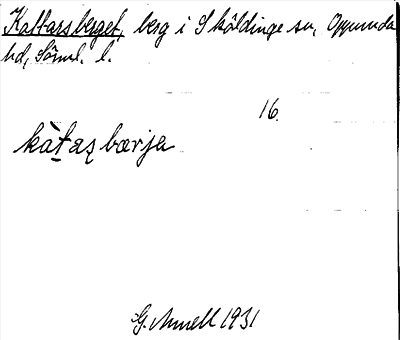 Kattarsberget, berg i Sköldinge sn, Oppunda
hd, Sörml. l.
16.
kàtaʂbærja
G. Annell 1931